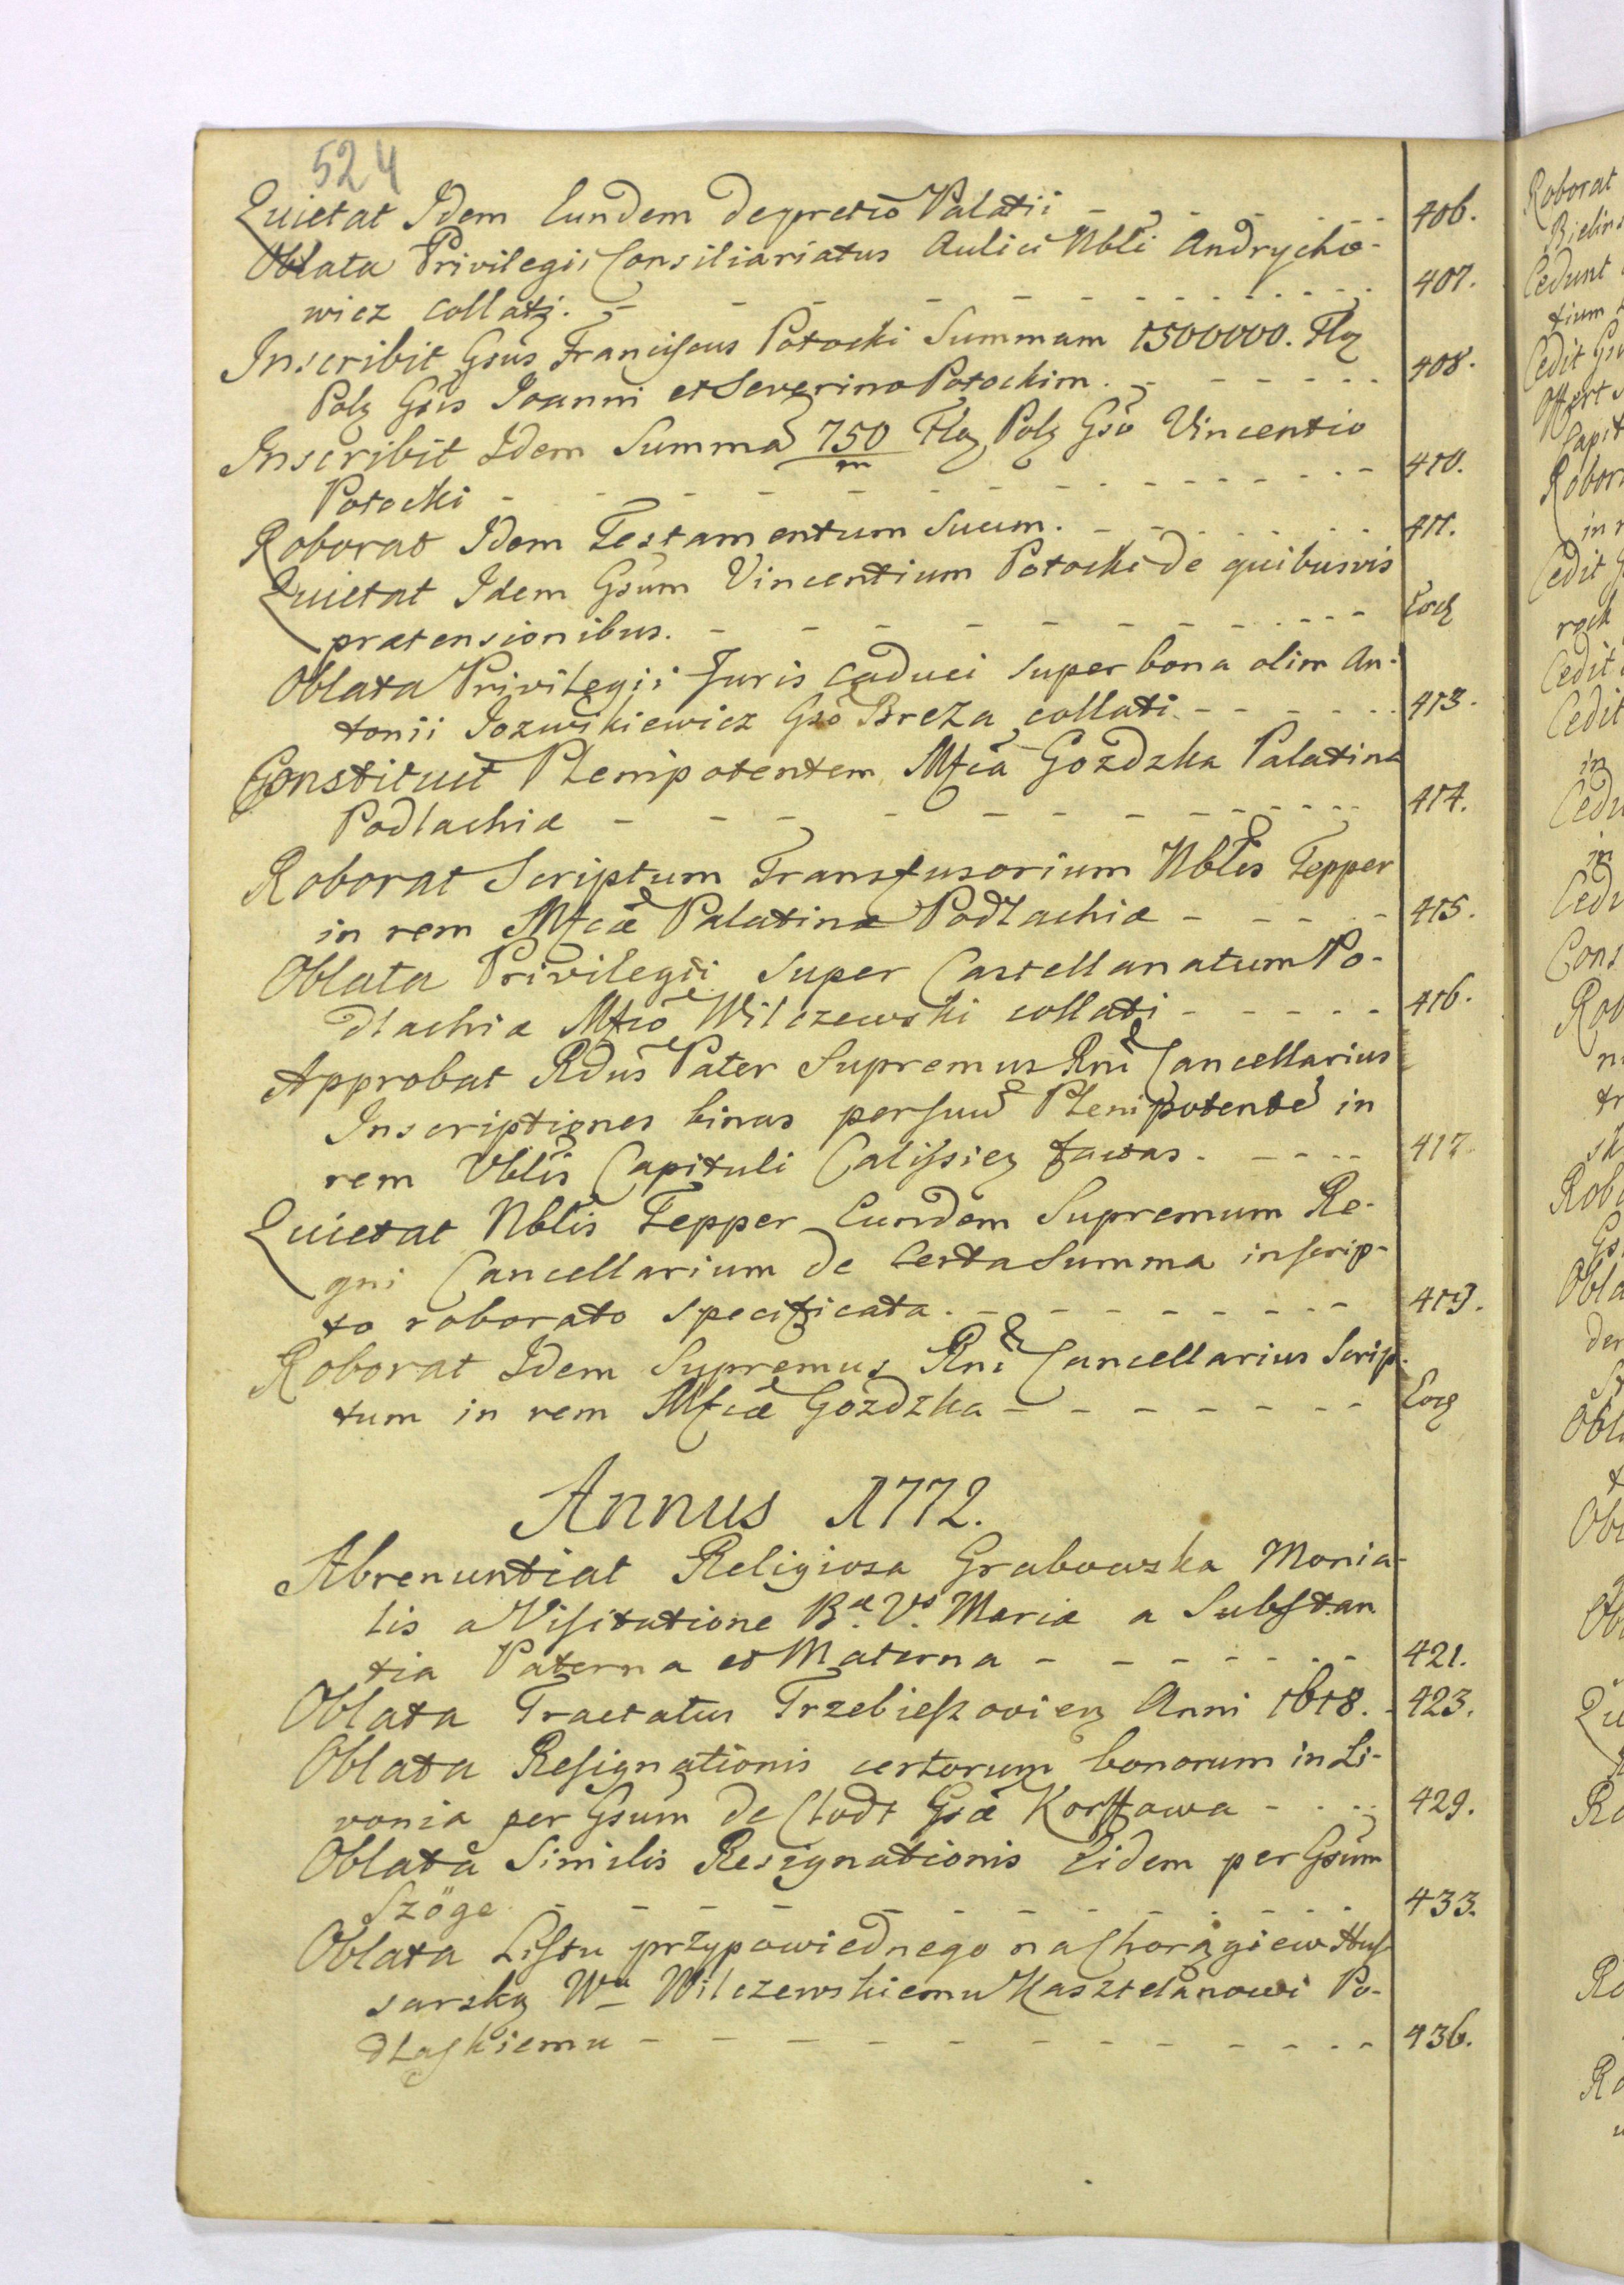 524
Quietat Idem Eundem de pretio Palatii - - - - - - 406.
Oblata Privilegii Consiliariatus Aulici Nbli Andrycho-
wicz collati. - - - - - - - - - - - 407.
Inscribit Gsus Franciscus Potocki Summam 1500000. Flg
Polg Gsis Joanni et Severino Potockim. - - - - - - 408.
Inscribit Idem Summã 750/m Flg Polg Gso Vincentio
Potocki - - - - - - - - - - - - 410.
Roborat Idem Testamentum Suum. - - - - - - 411.
Quietat Idem Gsum Vincentium Potocki de quibusvis
prætensionibus. - - - - - - - - - - Eod
Oblata Privilegii Juris Caduci super bona olim An-
tonii Jozwikiewicz Gso Breza collati - - - - - - 413.
Constituit Plenipotentem Mfca Gozdzka Palatina
Podlachiæ - - - - - - - - - - - 414.
Roborat Scriptum Transfusorium Nblis Tepper
in rem Mfcæ Palatinæ Podlachiæ - - - - - 415.
Oblata Privilegii Super Castellanatum Po-
dlachiæ Mfco Wilczewski collati - - - - - 416.
Approbat Rdus Pater Supremus Rni Cancellarius
Inscriptiones binas per suũ Plenipotentẽ in
rem Vblis Capituli Calissieg factas. - - - - 417.
Quietat Nblis Tepper Eundem Supremum Re-
gni Cancellarium de Certa Summa in scrip-
to roborato specificata. - - - - - - - - - 419.
Roborat Idem Supremus Rni Cancellarius Scrip-
tum in rem Mfcæ Gozdzka - - - - - - - - Eod
Annus 1772.
Abrenuntiat Religiosa Grabowska Monia-
lis a Visitatione B.æ V.s Mariæ a Substan
tia Paterna et Materna - - - - - - - 421.
Oblata Tractatus Trzebieszovieg Anni 1618. - 423.
Oblata Resignationis certorum bonorum in Li-
vonia per Gsum de Clodt Gsæ Korffowa - - - - 429.
Oblata Similis Resignationis Eidem per Gsum
Szöge - - - - - - - - - - - - 433.
Oblata Listu przypowiednego na Chorągiew Hus
sarską Wu Wilczewskiemu Kasztelanowi Po-
dlaskiemu - - - - - - - - - - - - 436.